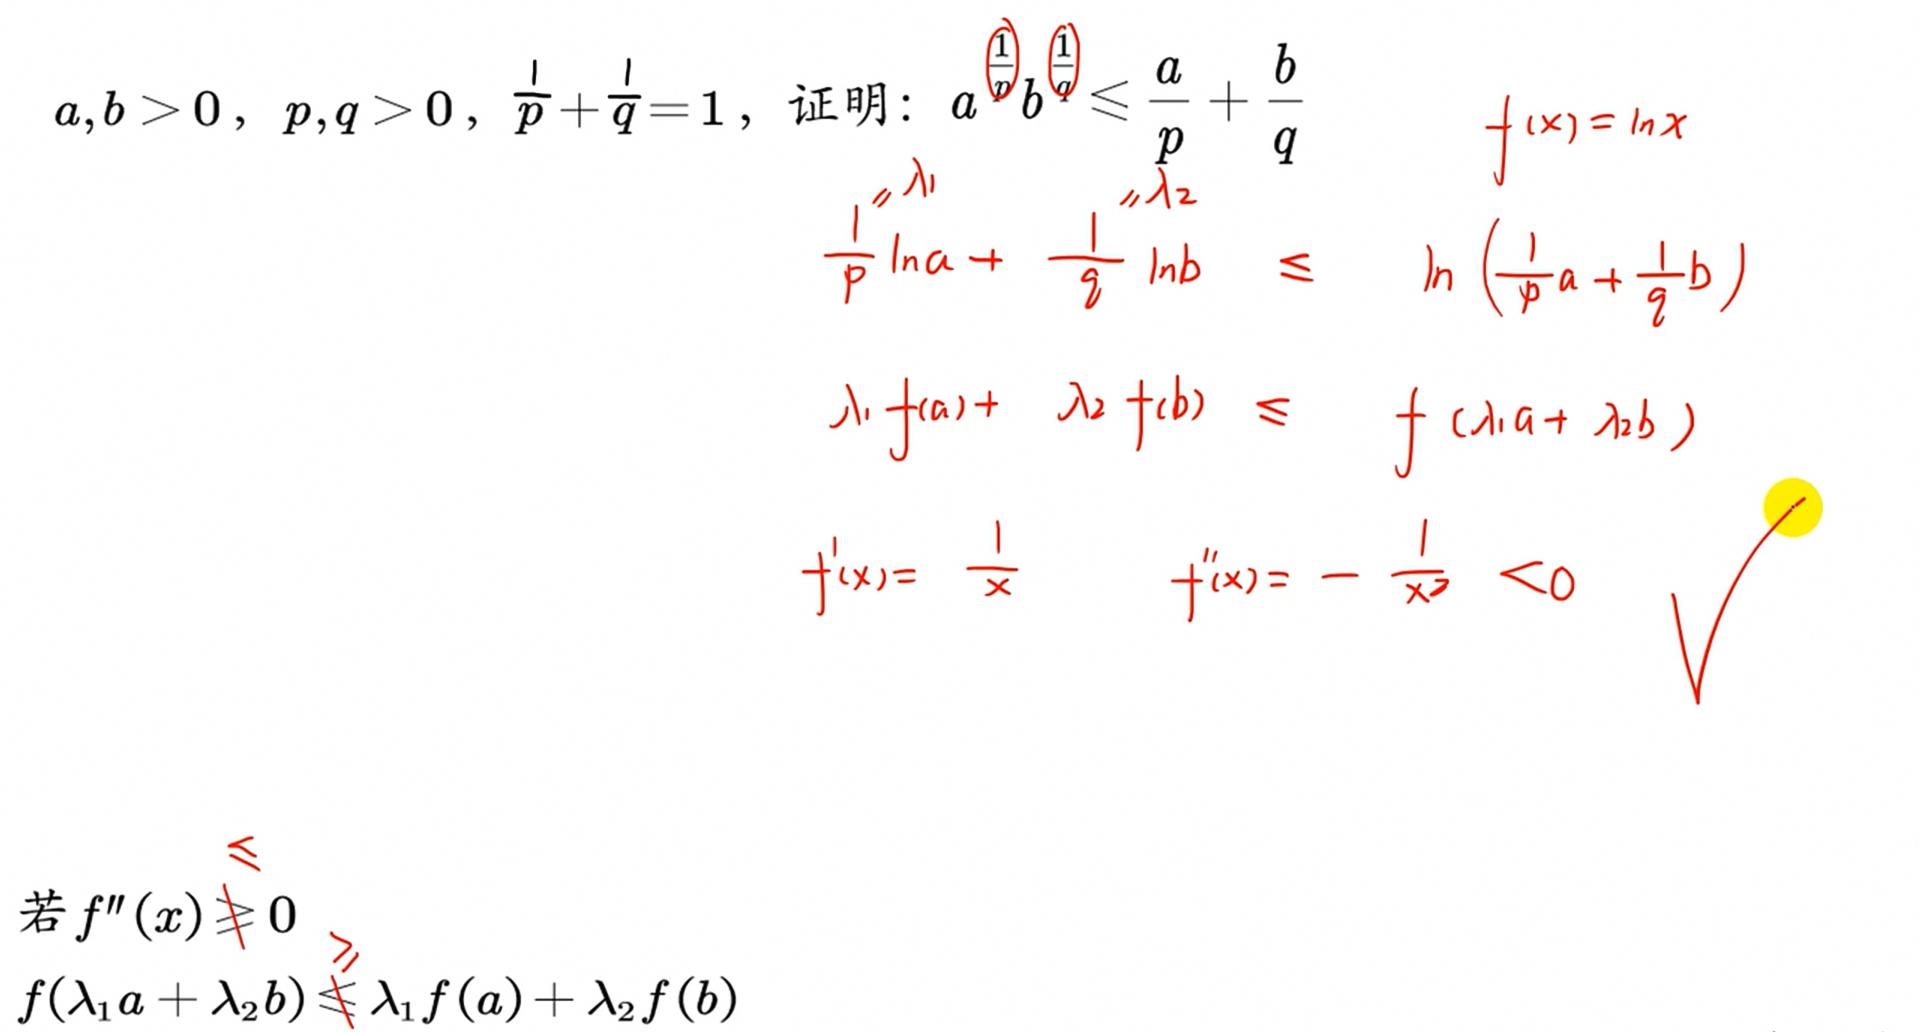 a,b > 0, p,q > 0, 1/p + 1/q = 1, 证明: a^(1/p) b^(1/q) ⩽ a/p + b/q
f(x) = ln x
= λ₁ = λ₂
1/p ln a + 1/q ln b ≤ ln (1/p a + 1/q b)
λ₁ f(a) + λ₂ f(b) ≤ f (λ₁a + λ₂b)
f'(x) = 1/x f''(x) = − 1/x² < 0
≤
若 f''(x) ⩾ 0
⩾
f(λ₁a + λ₂b) ⩽ λ₁f(a) + λ₂f(b)